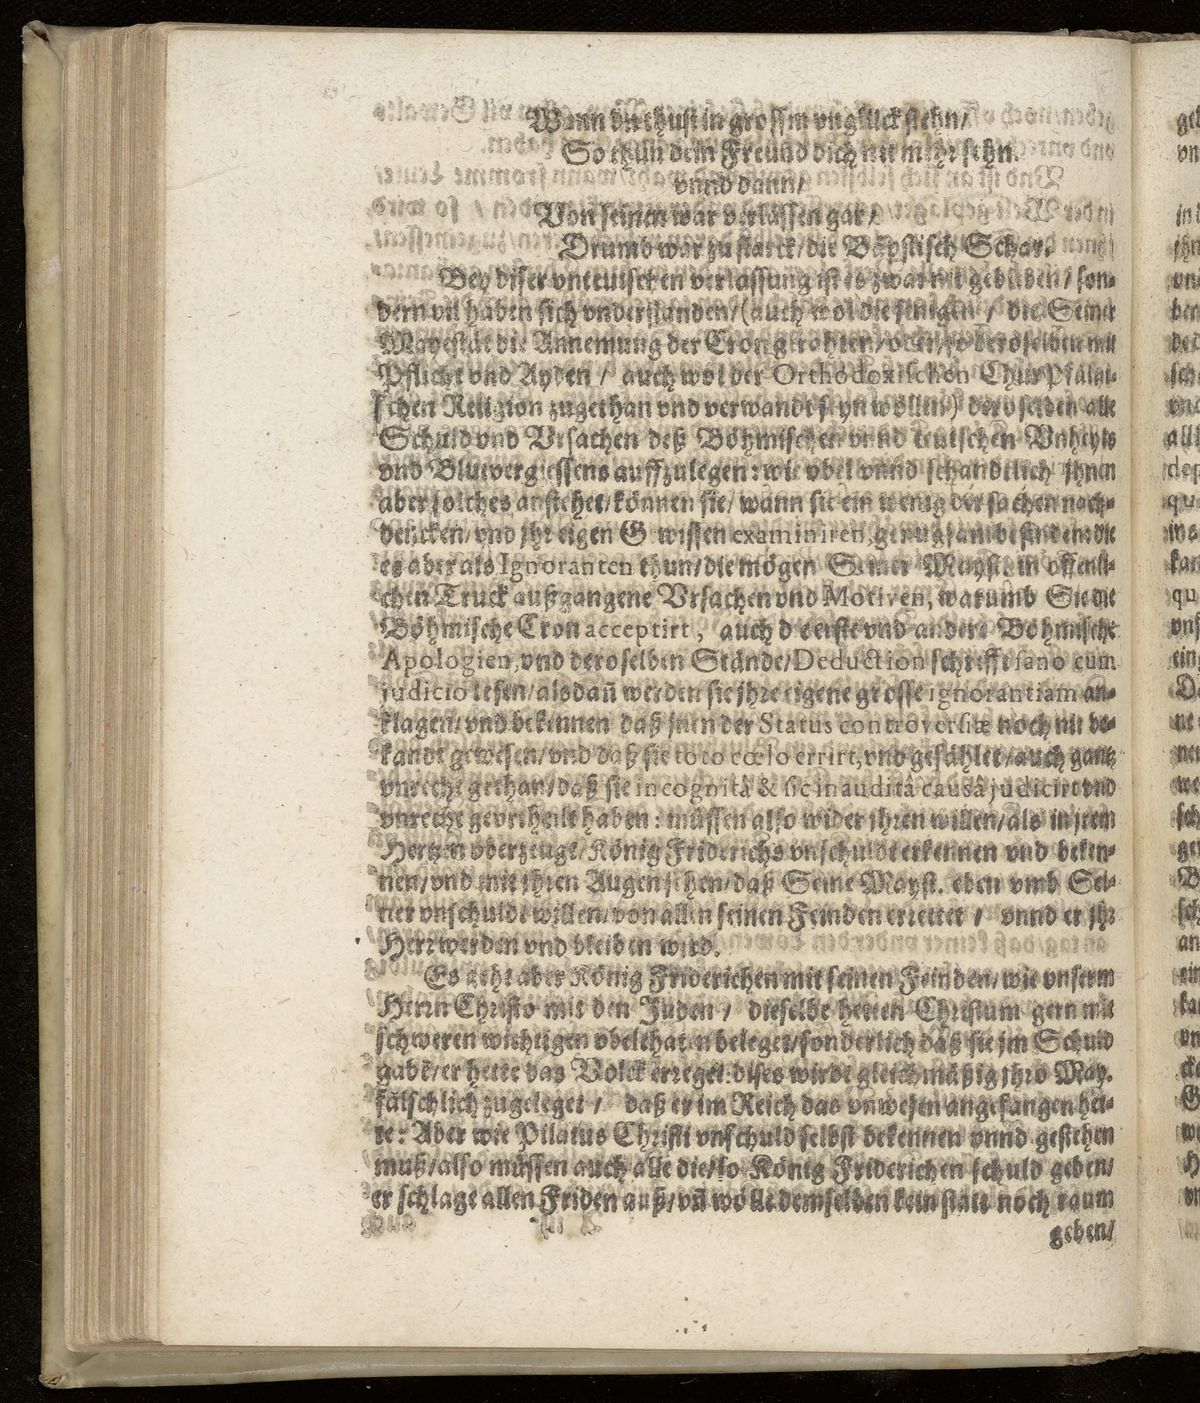 Wann du thust in grossm vnglück stehn/
So thun dem Freund dich nit mehr sehn.
vnnd dann/
Von seinen war verlassen gar/
Drumb war zu starck/die Bäpstisch Schar.
Bey diser vnteutschen verlassung ist es zwar nit gebliben/ son-
dern vil haben sich vnderstanden/(auch wol die jenigen / die Seiner
Mayestät die Annemung der Cron geröhten/ oder/so deroselben mit
Pflicht vnd Ayden / auch wol der Orthodoxischen Chur Pfältzi-
schen Religion zugethan vnd verwandt seyn wöllen) deroselben alle
Schuld vnd Vrsachen deß Böhmischen vnnd teutschen Vnheyls
vnd Blutvergiessens auffzulegen: wie vbel vnnd schandtlich jhnen
aber solches anstehet/können sie/ wann sie ein wenig der sachen nach-
dencken/ vnd jhr eigen Gewissen examiniren, genugsam befinden: die
es aber als Ignoranten thun/die mögen Seiner Mayst. in offentli-
chen Truck außgangene Vrsachen vnd Motiven, warumb Sie die
Böhmische Cron acceptirt, auch die erste vnd andere Böhmische
Apologien, vnd deroselben Stände/Deduction schrifft sano cum
judicio lesen/alsdañ werden sie jhre eigene grosse ignorantiam an-
klagen/ vnd bekennen daß jnen der Status controversiæ noch nit be-
kandt gewesen/vnd daß sie toto cœlo errirt, vnd gefählet/auch gantz
vnrecht gethan/daß sie incognitâ & sic inauditâ causâ judicirt vnd
vnrecht gevrtheilt haben: müssen also wider jhren willen/als in jrem
Hertzen vberzeugt/König Friderichs vnschuldt erkennen vnd beken-
nen/vnd mit jhren Augen sehen/daß Seine Mayst. eben vmb Sei-
ner vnschuldt willen/von allen seinen Feinden errettet / vnnd er jhr
Herr werden vnd bleiben wird.
Es geht aber König Friderichen mit seinen Feinden/ wie vnserm
Herrn Christo mit den Juden / dieselbe hetten Christum gern mit
schweren wichtigen vbelthaten beleget/sonderlich daß sie jm Schuld
gabē/er hette das Volck erreget: dises wirdt gleichmäßig jhro May.
fälschlich zugeleget / daß er im Reich das vnwesen angefangen het-
te: Aber wie Pilatus Christi vnschuld selbst bekennen vnnd gestehen
muß/also müssen auch alle die/so König Friderichen schuld geben/
er schlage allen Friden auß/vñ wölle demselben kein statt noch raum
geben/